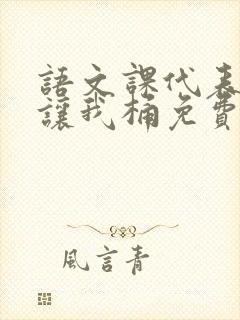 語文課代表
讓我桶免費
風言青